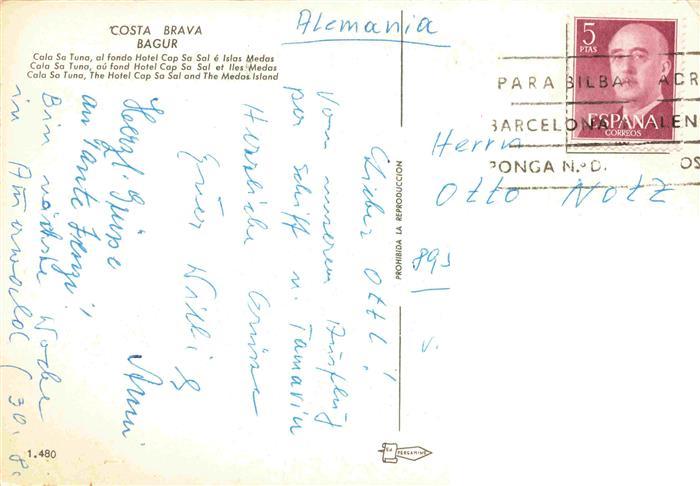 COSTA BRAVA
BAGUR
Cala Sa Tuna, al fondo Hotel Cap Sa Sal é Islas Medas
Cala Sa Tuna, aú fond Hotel Cap Sa Sal et Iles Medas
Cala Sa Tuna, The Hotel Cap Sa Sal and The Medas Island
Alemania
5
PTAS
ESPAÑA
CORREOS
PARA BILBA ADR
BARCELONA ALEN
PONGA N.º D. OS
Herrn
Otto Notz
893
v.
PROHIBIDA LA REPRODUCCION
Lieber Ottl!
Vom unserem Ausflug
per Schiff n. Tamariu
Herzliche Grüsse
Euer Willi &
Anni
Herzl. Grüsse
an Tante Fenzi!
Bin nächste Woche
in Atterwald (30. 8.
1.480
PERGAMINO